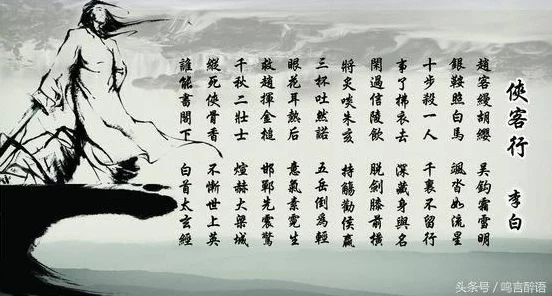 俠客行 李白
趙客縵胡纓 吴鈎霜雪明
銀鞍照白馬 颯沓如流星
十步殺一人 千裏不留行
事了拂衣去 深藏身與名
閑過信陵飲 脱劍膝前横
將炙啖朱亥 持觴勸侯嬴
三杯吐然諾 五岳倒爲輕
眼花耳熱后 意氣素霓生
救趙揮金槌 邯鄲先震驚
千秋二壯士 煊赫大梁城
縱死俠骨香 不慚世上英
誰能書閣下 白首太玄經
头条号 / 鸣言醉语